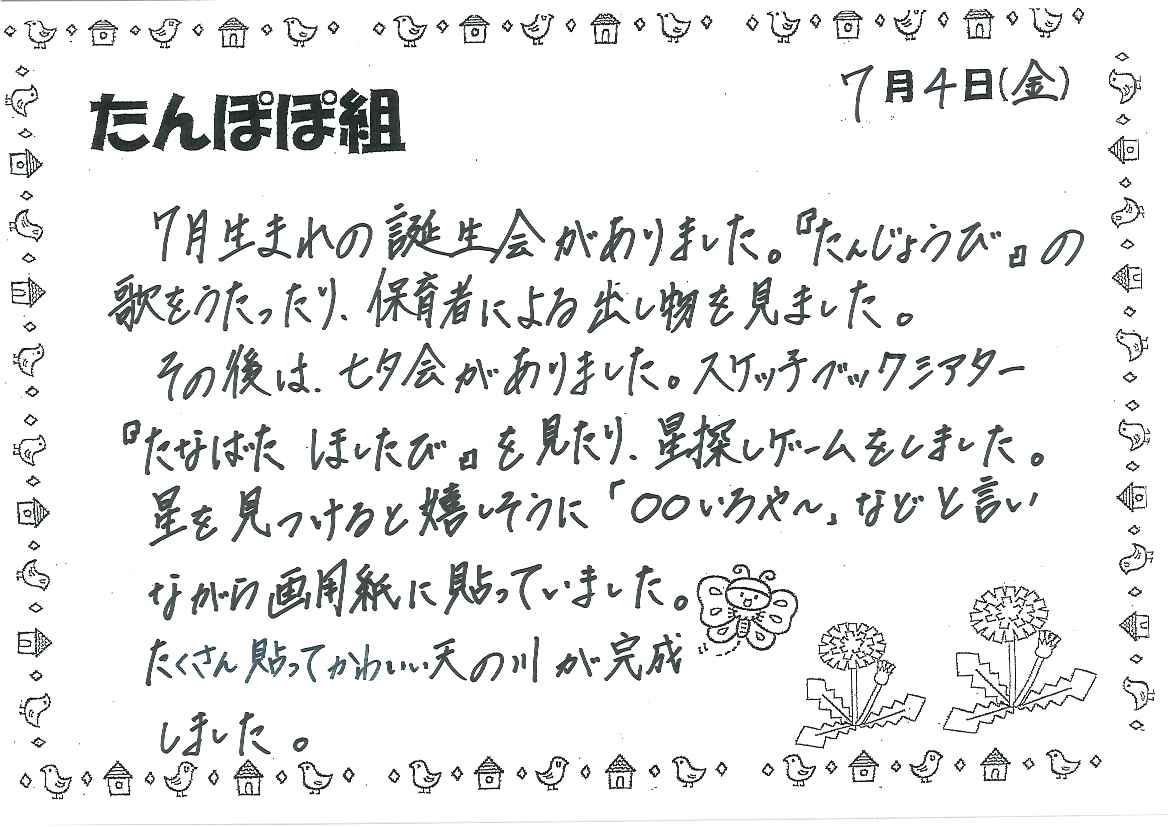 たんぽぽ組
7月4日(金)
7月生まれの誕生会がありました。『たんじょうび』の
歌をうたったり、保育者による出し物を見ました。
その後は、七夕会がありました。スケッチブックシアター
『たなばた ほしたび』を見たり、星探しゲームをしました。
星を見つけると嬉しそうに「〇〇いろや〜」などと言い
ながら画用紙に貼っていました。
たくさん貼ってかわいい天の川が完成
しました。